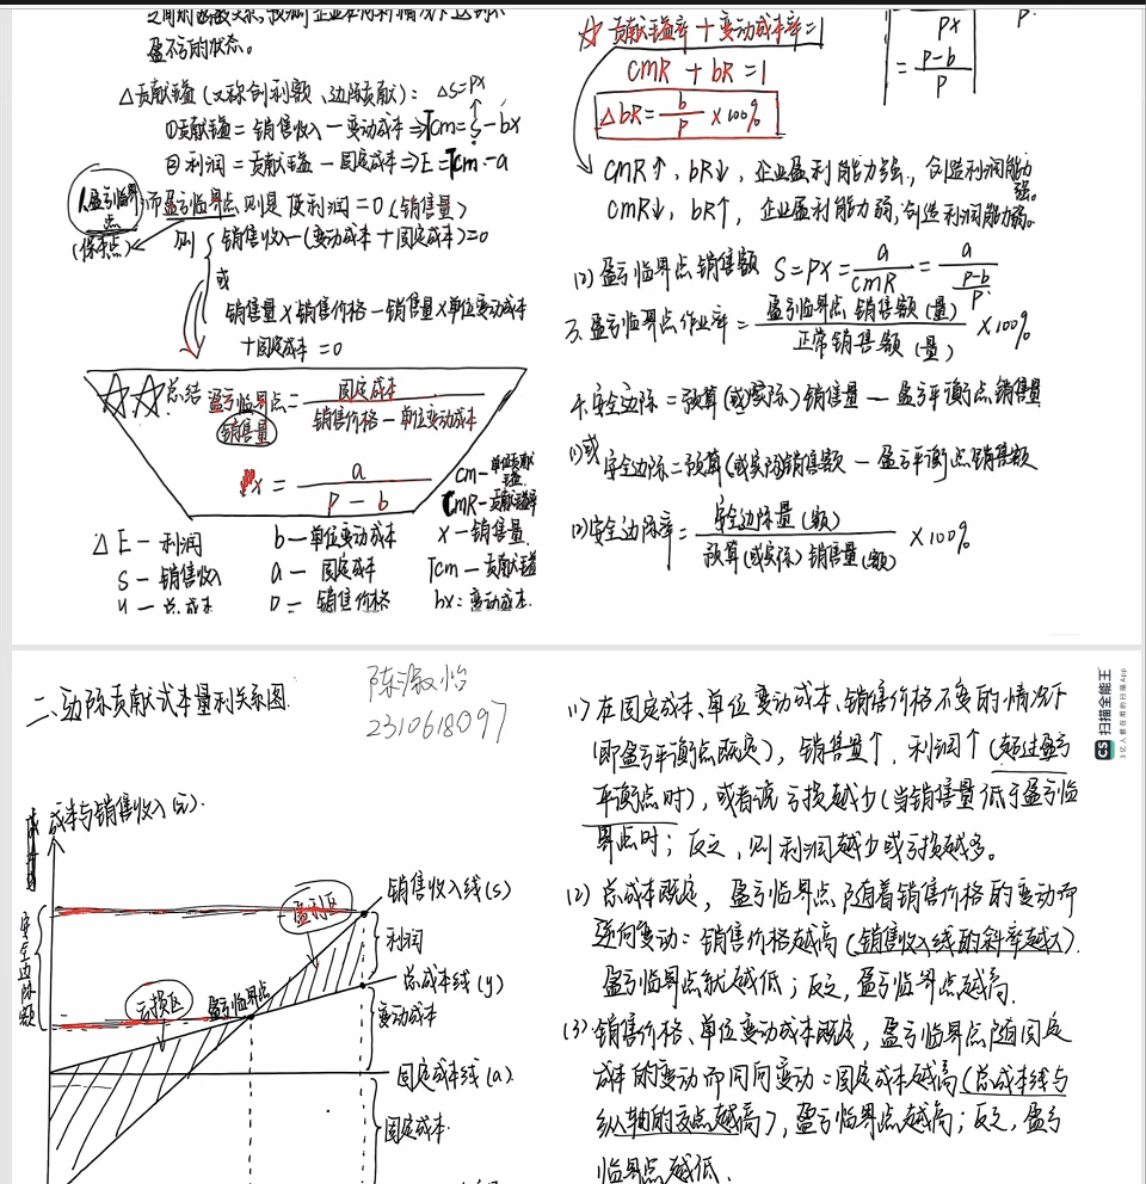 盈不亏的状态。
△贡献毛益(又称创利额、边际贡献): △S=PX
①贡献毛益=销售收入-变动成本⇒Tcm=S-bx
②利润=贡献毛益-固定成本⇒E=Tcm-a
1.盈亏临界点
(保本点)
而盈亏临界点,则是使利润=0(销售量)
则 销售收入-(变动成本+固定成本)=0
或
销售量×销售价格-销售量×单位变动成本
+固定成本=0
☆☆总结 盈亏临界点= 固定成本
销售量 销售价格-单位变动成本
x= a
P-b
cm-单位贡献毛益
cmR-贡献毛益率
△E-利润 b-单位变动成本 x-销售量
S-销售收入 a-固定成本 Tcm-贡献毛益
y-总成本 P-销售价格 bx:变动成本.
☆贡献毛益率+变动成本率=1
cmR+bR=1
△bR= b/P ×100%
PX
= P-b
P
P.
cmR↑,bR↓,企业盈利能力强,创造利润能力强。
cmR↓,bR↑,企业盈利能力弱,创造利润能力弱。
(2)盈亏临界点销售额 S=PX= a/cmR = a
P-b
P
3.盈亏临界点作业率= 盈亏临界点销售额(量) ×100%
正常销售额(量)
4.安全边际=预算(或实际)销售量-盈亏平衡点销售量
(1)或 安全边际=预算(或实际)销售额-盈亏平衡点销售额
(2)安全边际率= 安全边际量(额) ×100%
预算(或实际)销售量(额)
二、边际贡献式本量利关系图.
陈淑怡
2310618097
成本与销售收入(元).
安全边际额
亏损区
盈亏临界点
盈利区
销售收入线(S)
利润
总成本线(y)
变动成本
固定成本线(a).
固定成本.
(1)在固定成本、单位变动成本、销售价格不变的情况下
(即盈亏平衡点既定),销售量↑,利润↑(超过盈亏
平衡点时),或者说亏损越少(当销售量低于盈亏临
界点时;反之,则利润越少或亏损越多。
(2)总成本既定,盈亏临界点随着销售价格的变动而
逆向变动:销售价格越高(销售收入线的斜率越大).
盈亏临界点就越低;反之,盈亏临界点越高.
(3)销售价格、单位变动成本既定,盈亏临界点随固定
成本的变动而同向变动:固定成本越高(总成本线与
纵轴的交点越高),盈亏临界点越高;反之,盈亏
临界点越低.
CS 扫描全能王
3亿人都在用的扫描App